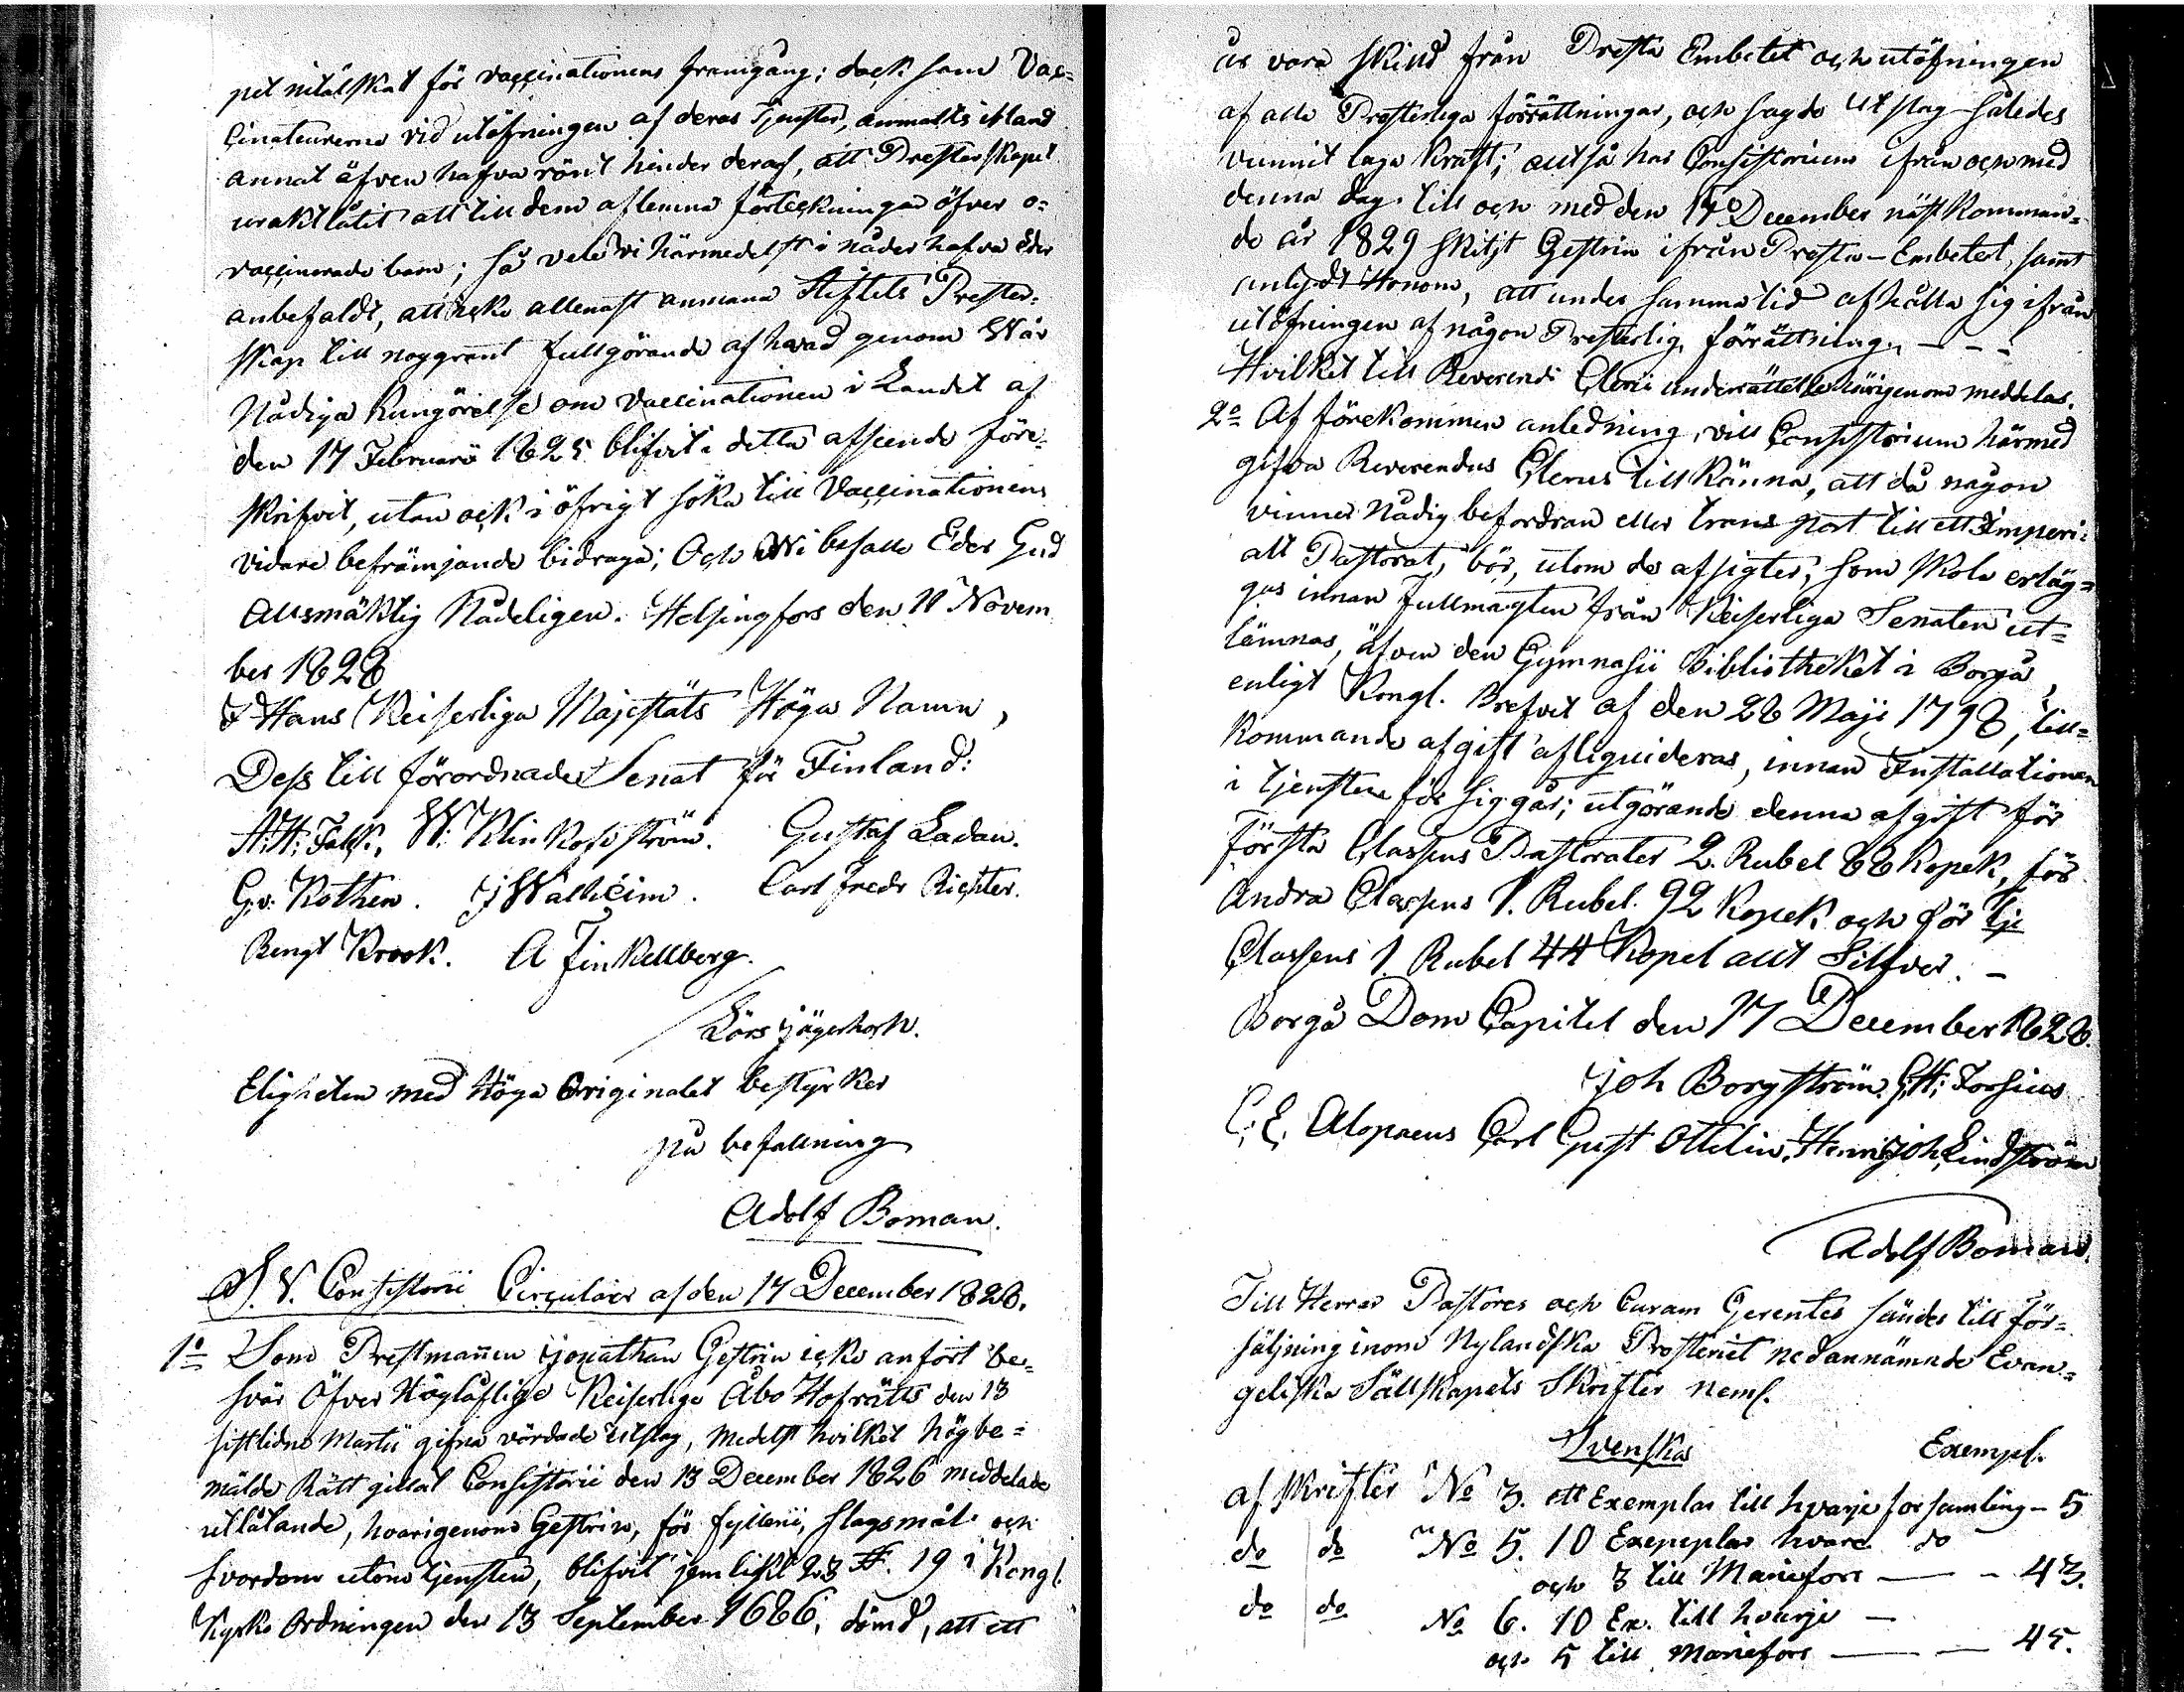 pet nitälskat för vaccinationens framgång; dock som Vac=
cinateurerne vid utöfningen af deras Tjenster, anmälts ibland
annat äfven hafva rönt hinder deraf, att Presterskapet
uraktlåtit att till dem aflemna förteckningar öfver o=
vaccinerade barn; Så vele vi härmedelst i nåder hafva Eder
anbefaldt, att icke allenast anmana Stiftets Prester=
skap till noggrant fullgörande af hvad genom Wår
Nådiga Kungörelse om Vaccinationen i Landet af
den 17 Februarii 1825 blifvit i detta afseende före=
skrifvit, utan ock i öfrigt söka till Vaccinationens
vidare befrämjande bidraga; Och Wi befalle Eder Gud
Allsmäktig Nådeligen. Helsingfors den 11 Novem
ber 1828
I Hans Keiserliga Majestäts Höga Namn,
Dess till förordnade Senat för Finland:
A: H: Falk. W: Klinkofström. Gustaf Ladau.
G. v: Kothen. J Walheim. Carl Fredr Richter.
Bengt Krook. A Finkellberg.
Lars Jägerhorn.
Eligheten med Höga Originalet bestyrker
på befallning
Adolf Boman.
S. V. Consistorii Circulair af den 17 December 1828.
1o Som Prestmannen Jonathan Gestrin icke anfört be=
svär Öfver Höglåflige Keiserlige Åbo Hofrätts den 13
sistlidne Martii gifna vördade utslag, medelst hvilket högbe=
mälde Rätt gillat Consistorii den 13 December 1826 meddelade
utlåtande, hvarigenom Gestrin, för fylleri, slagsmål och
svordom utom tjensten, blifvit jemlikt 19 i Kongl.
Kyrko Ordningen den 13 September 1686, dömd, att ett
år vara skild från Presta Embetet och utöfningen
af alla Presterliga förrättningar, och sagde Utslag således
vunnit laga kraft; altså har Consistorium ifrån och med
denna dag till och med den 17 December nästkomman=
de år 1829 skiljt Gestrin ifrån Presta-Embetet, samt
ålagdt Honom, att under samma tid afhålla sig ifrån
utöfningen af någon Presterlig förrättning. - - -
Hvilket till Reverendi Cleri underrättelse härigenom meddelas.
2o Af förekommen anledning, vill Consistorium härmed
gifva Reverendus Clerus tillkänna, att då någon
vinner Nådig befordran eller transport till ett Imperi=
alt Pastorat, bör, utom de afgifter, som skola erläg=
gas innan Fullmagten från Keiserliga Senaten ut=
lämnas, äfven den Gymnasii Bibliotheket i Borgå,
enligt Kongl. Brefvet af den 28 Maji 1798, till=
kommande afgift afliquideras, innan Installationen
i tjensten för sig går; utgörande denna afgift för
första Classens Pastorater 2. Rubel 88 Kopek, för
Andra Classens 1. Rubel. 92 Kopek och för 3je
Classens 1 Rubel 44 Kopek allt Silfver. -
Borgå Dom Capitel den 17 December 1828.
Joh Borgström. G. H: Forsius
C. E. Alopaeus Carl Gust Ottelin. Henr Joh Lindström
Adolf Boman.
Till Herrar Pastores och Curam Gerentes sändes till för=
säljning inom Nylandska Prosteriet nedannämnde Evan=
geliska Sällskapets Skrifter neml.
Svenska Exempl.
af skrifter No 3. ett Exemplar till hvarje församling - 5
do do No 5. 10 Exemplar hvarje do
och 3 till Mariefors - - 43.
do do No 6. 10 Ex. till hvarje -
och 5 till Mariefors - - 45.